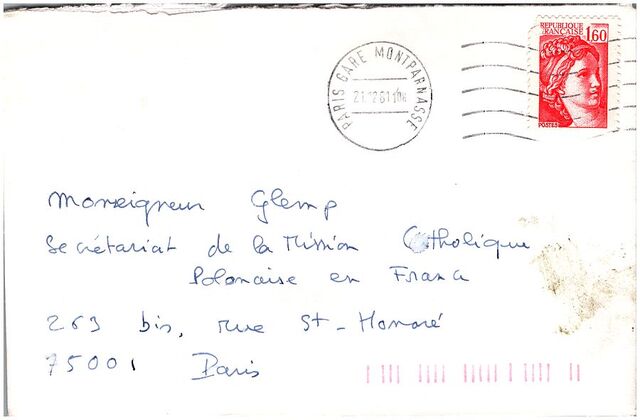 REPUBLIQUE
FRANCAISE
1,60
POSTES
PARIS GARE MONTPARNASSE
Monseigneur Glemp
Secrétariat de la Mission Catholique
Polonaise en France
263 bis, rue St-Honoré
75001 Paris